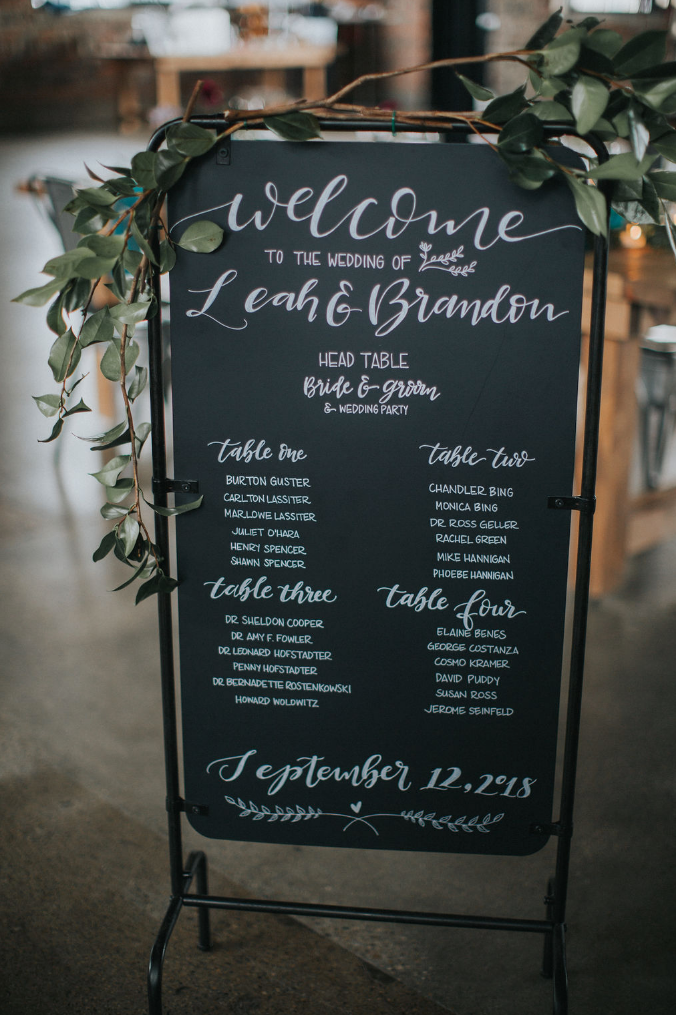 welcome
TO THE WEDDING OF
Leah & Brandon
HEAD TABLE
Bride & groom
& WEDDING PARTY
table one
BURTON GUSTER
CARLTON LASSITER
MARLOWE LASSITER
JULIET O'HARA
HENRY SPENCER
SHAWN SPENCER
table two
CHANDLER BING
MONICA BING
DR ROSS GELLER
RACHEL GREEN
MIKE HANNIGAN
PHOEBE HANNIGAN
table three
DR. SHELDON COOPER
DR. AMY F. FOWLER
DR LEONARD HOFSTADTER
PENNY HOFSTADTER
DR BERNADETTE ROSTENKOWSKI
HOWARD WOLOWITZ
table four
ELAINE BENES
GEORGE COSTANZA
COSMO KRAMER
DAVID PUDDY
SUSAN ROSS
JEROME SEINFELD
September 12, 2018